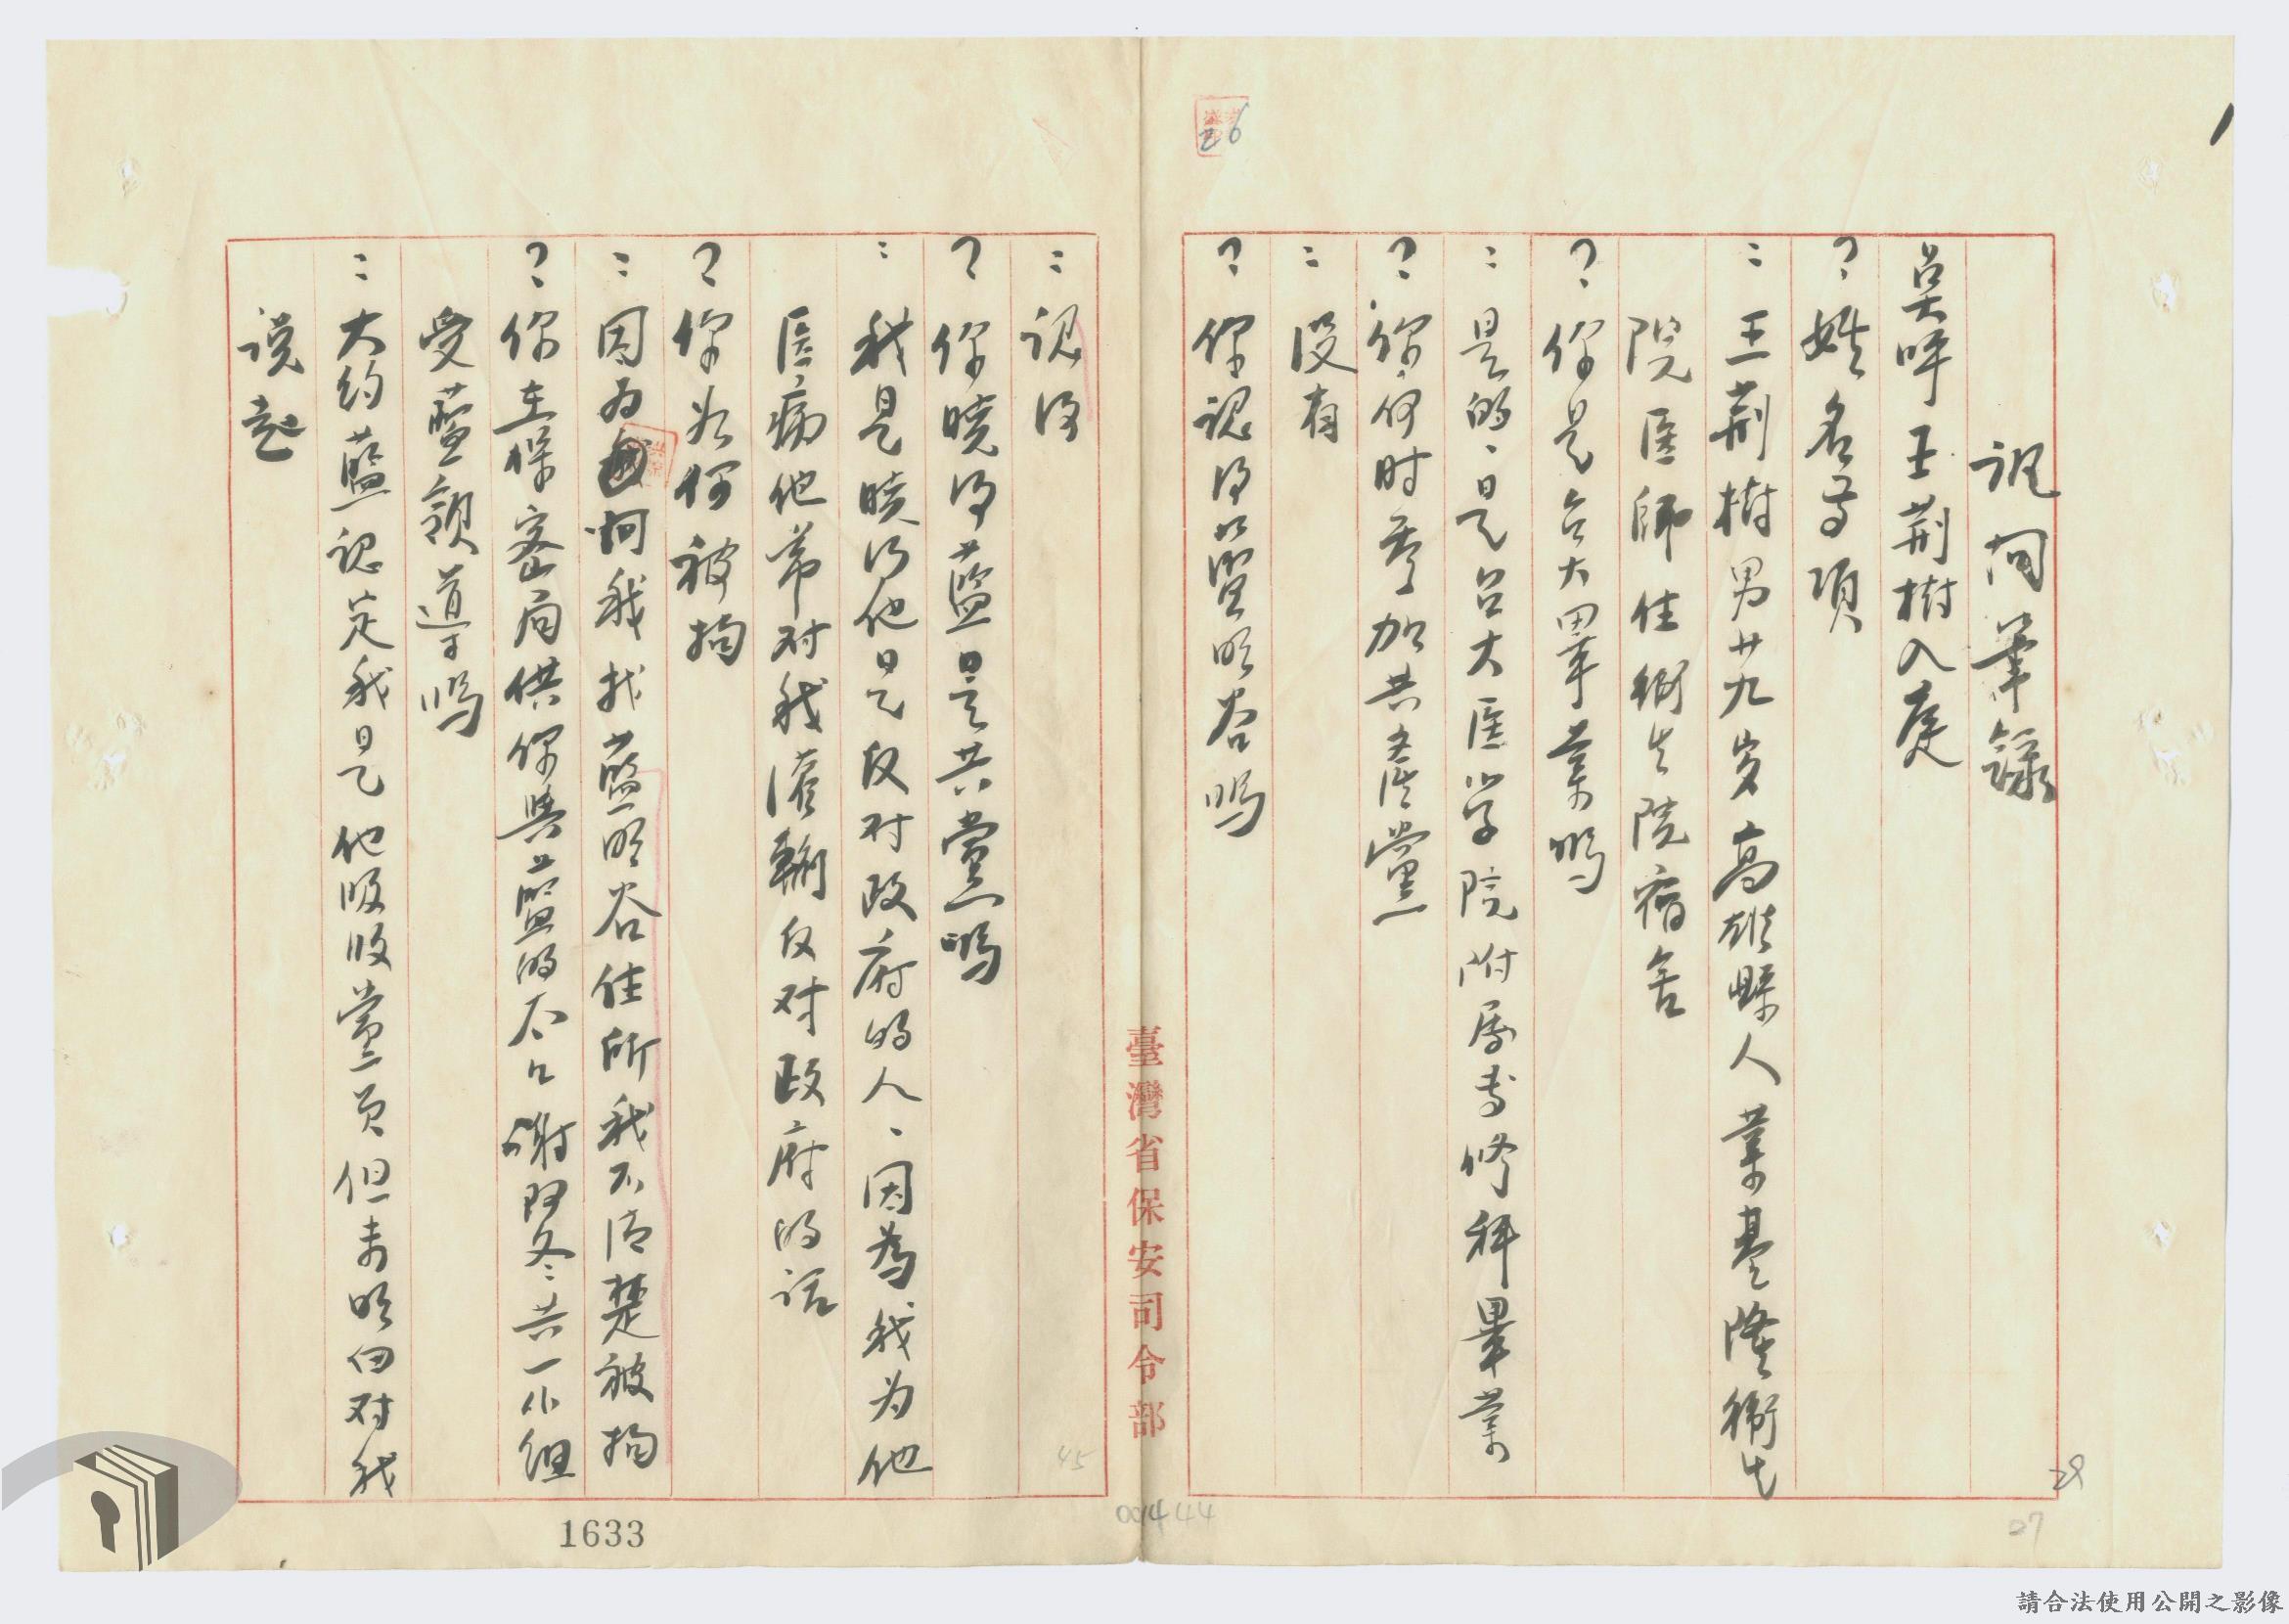 訊問筆錄
点呼王荆樹入庭
？姓名等項
：王荆樹男廿九岁高雄縣人業基隆衛生
院医師住衛生院宿舍
？你是台大畢業嗎
：是的、是台大医学院附属専修科畢業
？你何时参加共產黨
：没有
？你認得藍明谷嗎
：認得
？你曉得藍是共黨嗎
：我是曉得他是反对政府的人、因為我为他
医病他常对我灌輸反对政府的話
？你为何被拘
：因为 我找藍明谷住所我不清楚被拘
？你在保密局供你與藍的太々謝阿冬共一小組
受藍領導嗎
：大約藍認定我是他吸收黨員但未明白对我
说起
臺灣省保安司令部
26
29
27
45
001444
1633
請合法使用公開之影像